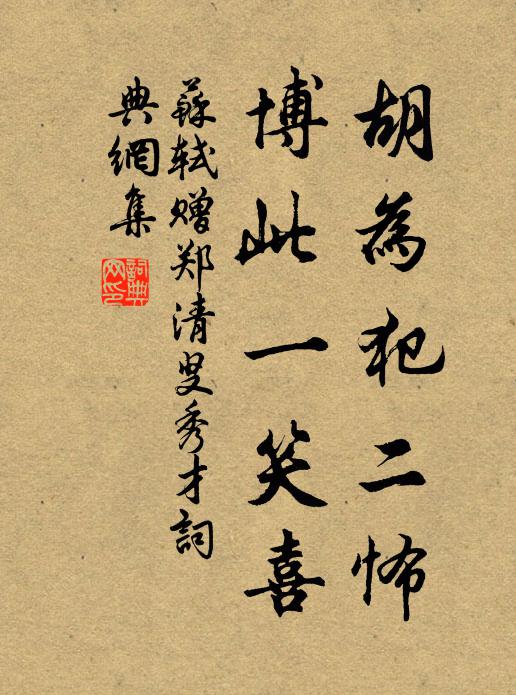 胡為犯二怖
博此一笑喜
蘇軾贈郑清叟秀才詞
典網集
詞典
网印